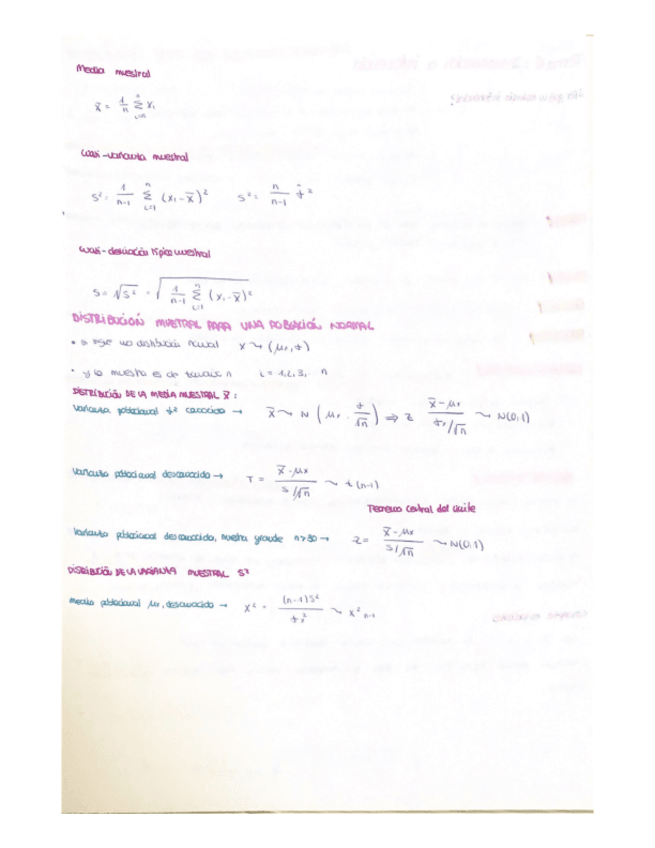 Media muestral
x̄ = 1/n Σ xᵢ
Cuasi-varianza muestral
s² = 1/(n-1) Σ (xᵢ - x̄)²   s² = n/(n-1) σ̂²
Cuasi-desviación típica muestral
s = √s² = √(1/(n-1) Σ (xᵢ - x̄)²)
DISTRIBUCIÓN MUESTRAL PARA UNA POBLACIÓN NORMAL
• una distribución normal x ~> (μx, σ)
• y la muestra es de tamaño n i = 1, 2, 3, n
DISTRIBUCIÓN DE LA MEDIA MUESTRAL x̄ :
Varianza poblacional σ² conocida → x̄ ~> N (μx, σ/√n) ⇒ z (x̄ - μx)/(σx/√n) ~> N(0,1)
Varianza poblacional desconocida → T = (x̄ - μx)/(s/√n) ~ t (n-1)
Teorema Central del Límite
Varianza poblacional desconocida, muestra grande n>30 → z = (x̄ - μx)/(s/√n) ~> N(0,1)
DISTRIBUCIÓN DE LA VARIANZA MUESTRAL s²
media poblacional μx, desconocida → x² = (n-1)s²/σx² ~> x² n-1